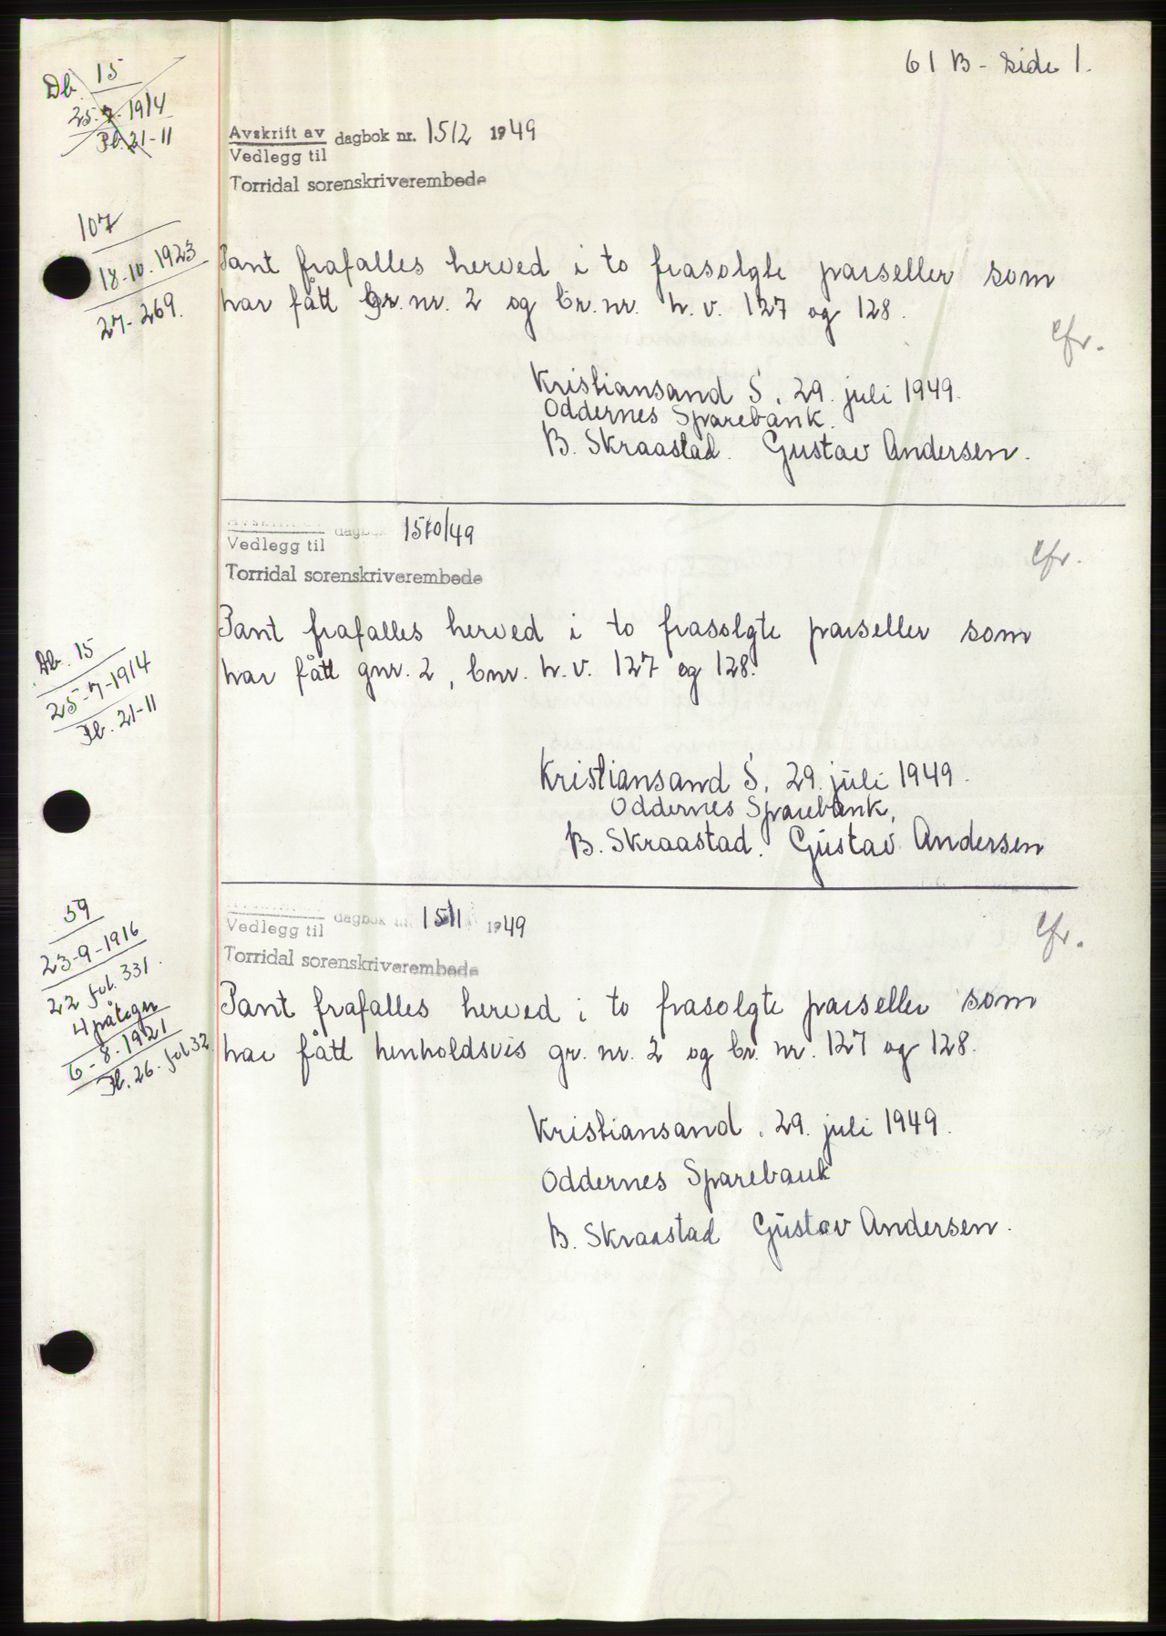 61 B - side 1.
Db. 15
25-7-1914
Pb. 21-11
Avskrift av dagbok nr. 1512 1949
Vedlegg til
Torridal sorenskriverembede
107
18-10-1923
27-269.
Pant frafalles herved i to frasolgte parseller som
har fått gr. nr. 2 og br. nr. h. v. 127 og 128.
Cfr.
Kristiansand S, 29. juli 1949.
Oddernes Sparebank.
B. Skraastad. Gustav Andersen.
Avskrift av dagbok 1510/49
Vedlegg til
Torridal sorenskriverembede
Cfr.
Pant frafalles herved i to frasolgte parseller som
har fått gnr. 2, bnr. h. v. 127 og 128.
Db. 15
25-7-1914
Pb. 21-11
Kristiansand S, 29. juli 1949.
Oddernes Sparebank,
B. Skraastad. Gustav Andersen
dagbok nr. 1511 1949
Vedlegg til
Torridal sorenskriverembede
Cfr.
59
23-9-1916
22 fol. 331.
4 påtegn
6-8.1921
Pb. 26. fol 32
Pant frafalles herved i to frasolgte parseller som
har fått henholdsvis gr. nr. 2 og br. nr. 127 og 128.
Kristiansand, 29. juli 1949.
Oddernes Sparebank
B. Skraastad Gustav Andersen.